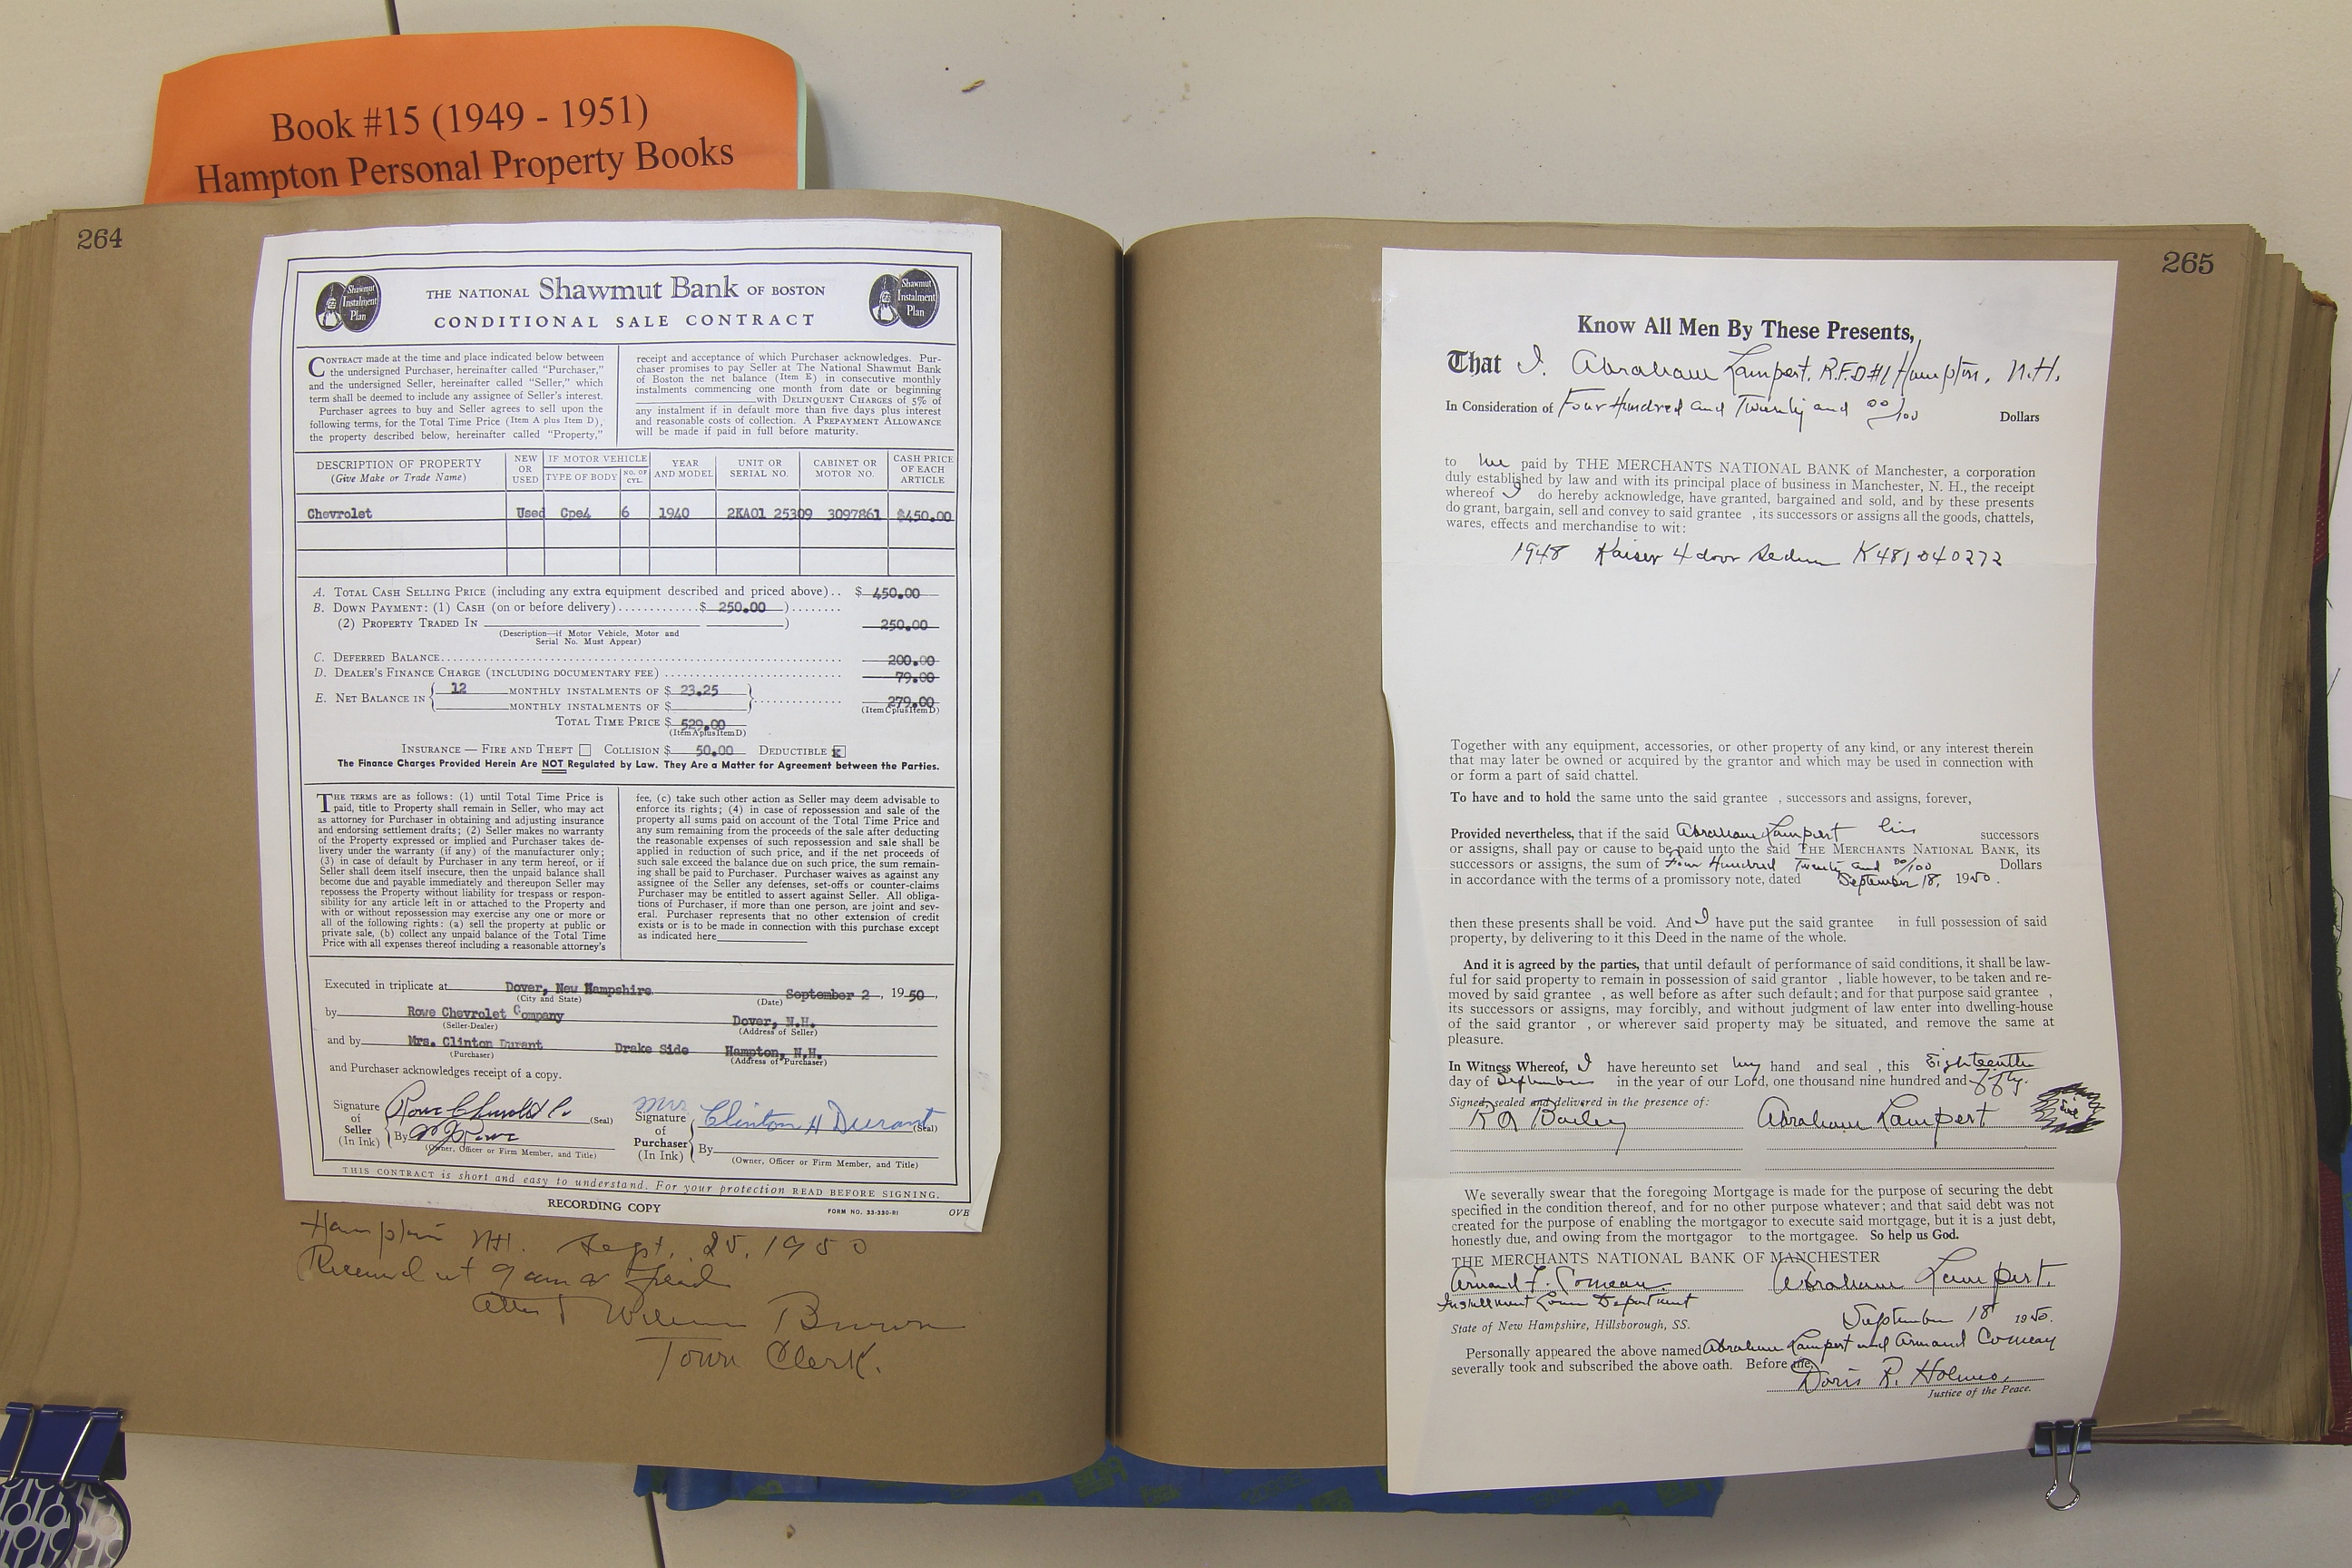 Book #15 (1949 - 1951)
Hampton Personal Property Books
264
Shawmut
Instalment
Plan
THE NATIONAL Shawmut Bank OF BOSTON
CONDITIONAL SALE CONTRACT
Shawmut
Instalment
Plan
CONTRACT made at the time and place indicated below between
the undersigned Purchaser, hereinafter called "Purchaser,"
and the undersigned Seller, hereinafter called "Seller," which
term shall be deemed to include any assignee of Seller's interest.
Purchaser agrees to buy and Seller agrees to sell upon the
following terms, for the Total Time Price (Item A plus Item D),
the property described below, hereinafter called "Property,"
receipt and acceptance of which Purchaser acknowledges. Pur-
chaser promises to pay Seller at The National Shawmut Bank
of Boston the net balance (Item E) in consecutive monthly
instalments commencing one month from date or beginning
with DELINQUENT CHARGES of 5% of
any instalment if in default more than five days plus interest
and reasonable costs of collection. A PREPAYMENT ALLOWANCE
will be made if paid in full before maturity.
DESCRIPTION OF PROPERTY
(Give Make or Trade Name)
NEW
OR
USED
IF MOTOR VEHICLE
TYPE OF BODY
NO. OF
CYL.
YEAR
AND MODEL
UNIT OR
SERIAL NO.
CABINET OR
MOTOR NO.
CASH PRICE
OF EACH
ARTICLE
Chevrolet Used Cpe4 6 1940 2KA01 25309 3097861 $450.00
A. TOTAL CASH SELLING PRICE (including any extra equipment described and priced above).. $ 450.00
B. DOWN PAYMENT: (1) CASH (on or before delivery)............$ 250.00 )........
(2) PROPERTY TRADED IN ) 250.00
(Description—if Motor Vehicle, Motor and
Serial No. Must Appear)
C. DEFERRED BALANCE........ 200.00
D. DEALER'S FINANCE CHARGE (INCLUDING DOCUMENTARY FEE)........ 79.00
E. NET BALANCE IN { 12 MONTHLY INSTALMENTS OF $ 23.25 } ........ 279.00
MONTHLY INSTALMENTS OF $ (Item C plus Item D)
TOTAL TIME PRICE $ 529.00
(Item A plus Item D)
INSURANCE — FIRE AND THEFT ☐ COLLISION $ 50.00 DEDUCTIBLE x
The Finance Charges Provided Herein Are NOT Regulated by Law. They Are a Matter for Agreement between the Parties.
THE TERMS are as follows: (1) until Total Time Price is
paid, title to Property shall remain in Seller, who may act
as attorney for Purchaser in obtaining and adjusting insurance
and endorsing settlement drafts; (2) Seller makes no warranty
of the Property expressed or implied and Purchaser takes de-
livery under the warranty (if any) of the manufacturer only;
(3) in case of default by Purchaser in any term hereof, or if
Seller shall deem itself insecure, then the unpaid balance shall
become due and payable immediately and thereupon Seller may
repossess the Property without liability for trespass or respon-
sibility for any article left in or attached to the Property and
with or without repossession may exercise any one or more or
all of the following rights: (a) sell the property at public or
private sale, (b) collect any unpaid balance of the Total Time
Price with all expenses thereof including a reasonable attorney's
fee, (c) take such other action as Seller may deem advisable to
enforce its rights; (4) in case of repossession and sale of the
property all sums paid on account of the Total Time Price and
any sum remaining from the proceeds of the sale after deducting
the reasonable expenses of such repossession and sale shall be
applied in reduction of such price, and if the net proceeds of
such sale exceed the balance due on such price, the sum remain-
ing shall be paid to Purchaser. Purchaser waives as against any
assignee of the Seller any defenses, set-offs or counter-claims
Purchaser may be entitled to assert against Seller. All obliga-
tions of Purchaser, if more than one person, are joint and sev-
eral. Purchaser represents that no other extension of credit
exists or is to be made in connection with this purchase except
as indicated here
Executed in triplicate at Dover, New Hampshire September 2, 1950,
(City and State) (Date)
by Rowe Chevrolet Company Dover, N.H.
(Seller-Dealer) (Address of Seller)
and by Mrs. Clinton Durant Drake Side Hampton, N.H.
(Purchaser) (Address of Purchaser)
and Purchaser acknowledges receipt of a copy.
Signature
of
Seller
(In Ink)
Rowe Chevrolet Co (Seal)
By Rowe
(Owner, Officer or Firm Member, and Title)
Signature
of
Purchaser
(In Ink)
Mrs Clinton H Durant (Seal)
By
(Owner, Officer or Firm Member, and Title)
THIS CONTRACT is short and easy to understand. For your protection READ BEFORE SIGNING.
RECORDING COPY FORM NO. 33-330-R1 OVE
Hampton NH. Sept. 25, 1950
Received at 9 am & filed
Attest William Brown
Town Clerk.
265
Know All Men By These Presents,
That I, Abraham Lampert, R.F.D #1 Hampton, N.H.
In Consideration of Four Hundred and Twenty and 00/100 Dollars
to me paid by THE MERCHANTS NATIONAL BANK of Manchester, a corporation
duly established by law and with its principal place of business in Manchester, N. H., the receipt
whereof I do hereby acknowledge, have granted, bargained and sold, and by these presents
do grant, bargain, sell and convey to said grantee , its successors or assigns all the goods, chattels,
wares, effects and merchandise to wit:
1948 Kaiser 4 door Sedan K481040272
Together with any equipment, accessories, or other property of any kind, or any interest therein
that may later be owned or acquired by the grantor and which may be used in connection with
or form a part of said chattel.
To have and to hold the same unto the said grantee , successors and assigns, forever,
Provided nevertheless, that if the said Abraham Lampert his successors
or assigns, shall pay or cause to be paid unto the said THE MERCHANTS NATIONAL BANK, its
successors or assigns, the sum of Four Hundred Twenty and 00/100 Dollars
in accordance with the terms of a promissory note, dated September 18, 1950.
then these presents shall be void. And I have put the said grantee in full possession of said
property, by delivering to it this Deed in the name of the whole.
And it is agreed by the parties, that until default of performance of said conditions, it shall be law-
ful for said property to remain in possession of said grantor , liable however, to be taken and re-
moved by said grantee , as well before as after such default; and for that purpose said grantee ,
its successors or assigns, may forcibly, and without judgment of law enter into dwelling-house
of the said grantor , or wherever said property may be situated, and remove the same at
pleasure.
In Witness Whereof, I have hereunto set my hand and seal , this Eighteenth
day of September in the year of our Lord, one thousand nine hundred and fifty.
Signed, sealed and delivered in the presence of:
R A Bailey Abraham Lampert
We severally swear that the foregoing Mortgage is made for the purpose of securing the debt
specified in the condition thereof, and for no other purpose whatever; and that said debt was not
created for the purpose of enabling the mortgagor to execute said mortgage, but it is a just debt,
honestly due, and owing from the mortgagor to the mortgagee. So help us God.
THE MERCHANTS NATIONAL BANK OF MANCHESTER
Armand F. Comeau Abraham Lampert.
Installment Loan Department
September 18 1950.
State of New Hampshire, Hillsborough, SS.
Personally appeared the above named Abraham Lampert and Armand Comeau
severally took and subscribed the above oath. Before me,
Doris R. Holmes,
Justice of the Peace.